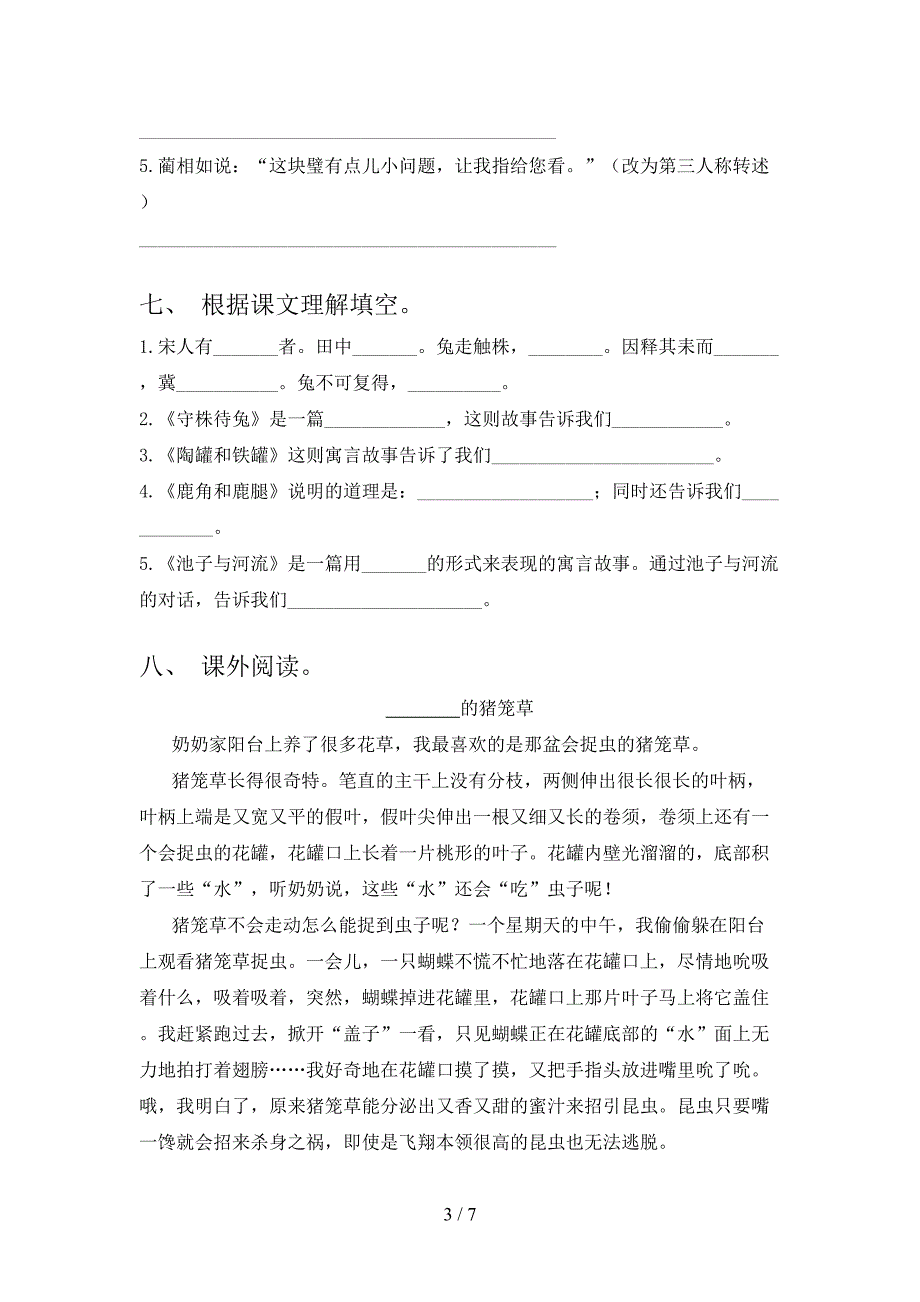 _____________________________________________
5.蔺相如说：“这块璧有点儿小问题，让我指给您看。”（改为第三人称转述
）
_____________________________________________
七、 根据课文理解填空。
1.宋人有_______者。田中_______。兔走触株，________。因释其耒而_______
，冀___________。兔不可复得，__________。
2.《守株待兔》是一篇_____________，这则故事告诉我们____________。
3.《陶罐和铁罐》这则寓言故事告诉了我们________________________。
4.《鹿角和鹿腿》说明的道理是：___________________；同时还告诉我们____
________。
5.《池子与河流》是一篇用_______的形式来表现的寓言故事。通过池子与河流
的对话，告诉我们_____________________。
八、 课外阅读。
________的猪笼草
奶奶家阳台上养了很多花草，我最喜欢的是那盆会捉虫的猪笼草。
猪笼草长得很奇特。笔直的主干上没有分枝，两侧伸出很长很长的叶柄，
叶柄上端是又宽又平的假叶，假叶尖伸出一根又细又长的卷须，卷须上还有一
个会捉虫的花罐，花罐口上长着一片桃形的叶子。花罐内壁光溜溜的，底部积
了一些“水”，听奶奶说，这些“水”还会“吃”虫子呢！
猪笼草不会走动怎么能捉到虫子呢？一个星期天的中午，我偷偷躲在阳台
上观看猪笼草捉虫。一会儿，一只蝴蝶不慌不忙地落在花罐口上，尽情地吮吸
着什么，吸着吸着，突然，蝴蝶掉进花罐里，花罐口上那片叶子马上将它盖住
。我赶紧跑过去，掀开“盖子”一看，只见蝴蝶正在花罐底部的“水”面上无
力地拍打着翅膀……我好奇地在花罐口摸了摸，又把手指头放进嘴里吮了吮。
哦，我明白了，原来猪笼草能分泌出又香又甜的蜜汁来招引昆虫。昆虫只要嘴
一馋就会招来杀身之祸，即使是飞翔本领很高的昆虫也无法逃脱。
3 / 7